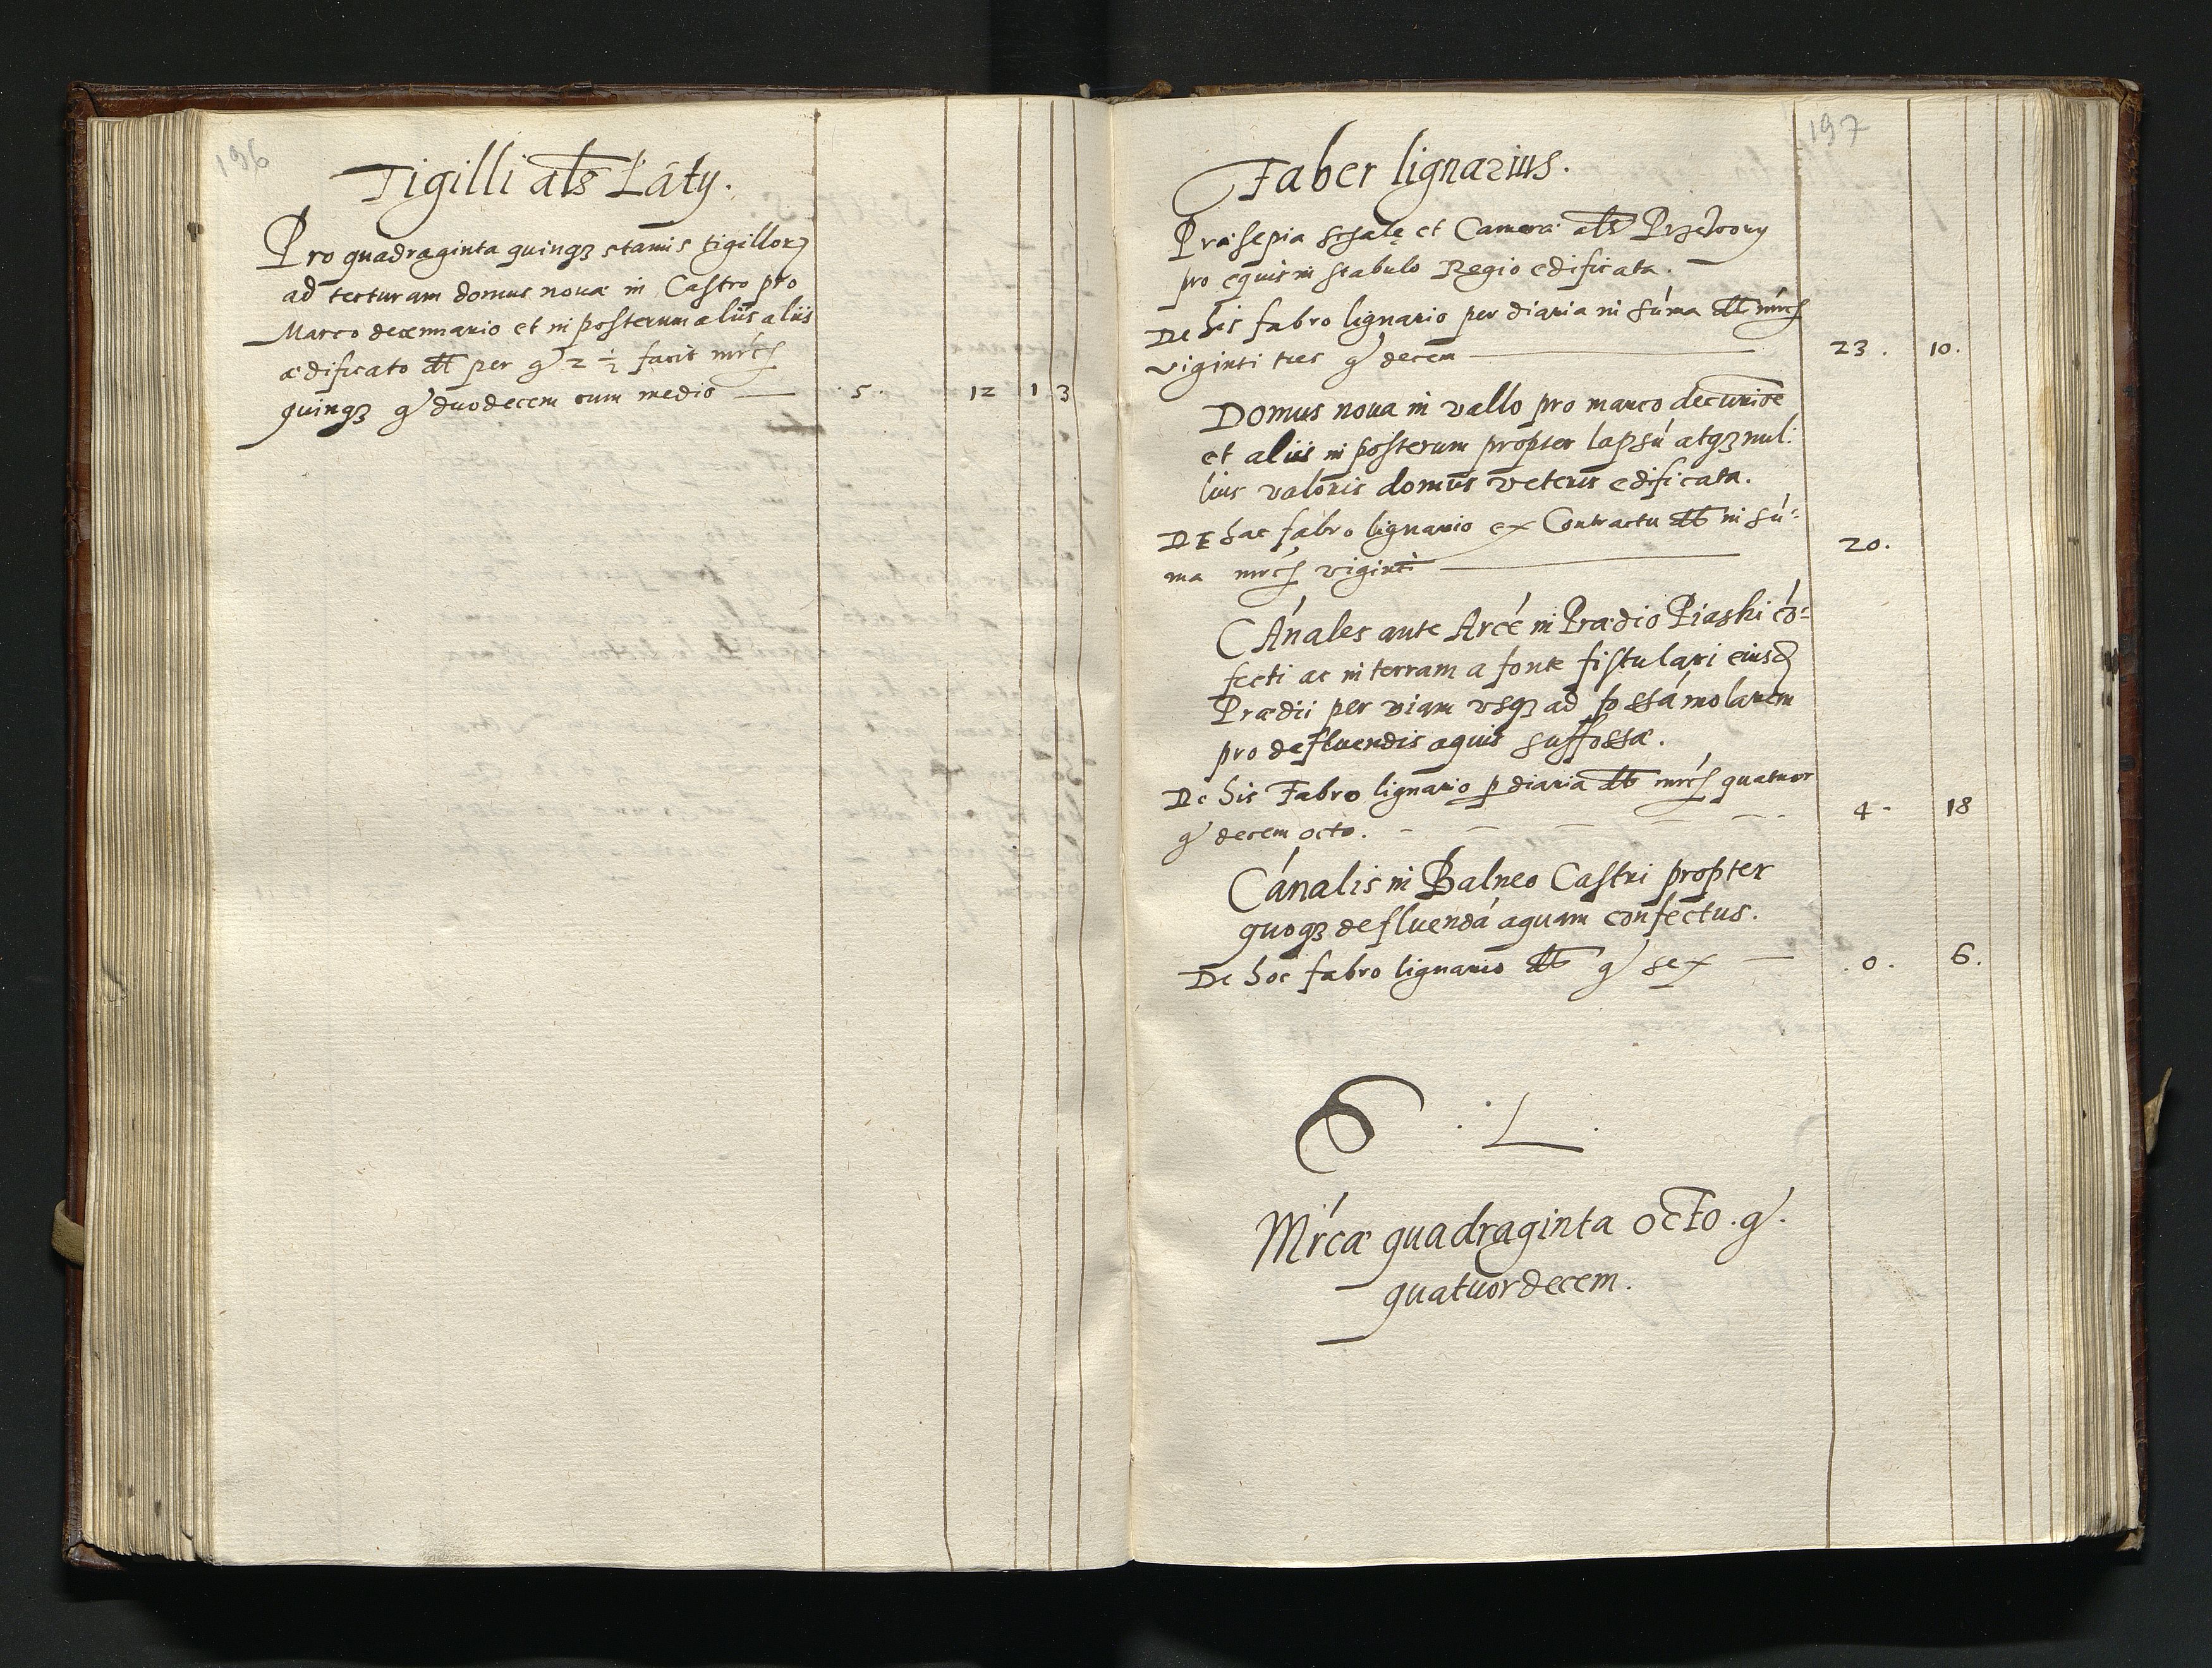 196
Tigilli als Łáty.
Pro quadraginta quinqz stamis tigilloꝝ
ad tecturam domus nouæ in Castro pro
Marco decennario et in posterum aliis aliis
ædificato dt per gr 2 ½ facit mrcs
quinqz gr duodecem cum medio — 5. 12 1 3
197
Faber lignarius.
Præsepia scalę et Camera als
pro equis in stabulo Regio edificata.
De his fabro lignario per diaria in súma dt mrcs
viginti tres gr decem — 23. 10.
Domus noua in vallo pro marco decurioe
et aliis in posterum propter lapsú atqz nul:
lius valoris domus veteris edificata.
De hac fabro lignario ex Contractu dt in sú:
ma mrcs viginti — 20.
Cánales ante Arcé in Prædio Piaski có:
fecti ac in terram a fonte fistulari eiusd
Prædii per viam vsqz ad fossá molarem
pro defluendis aquis suffossæ.
De his Fabro lignario p diaria dt mrcs quatuor
gr decem octo. - - - - - 4. 18
Cánalis in Balneo Castri propter
quoqz defluendá aquam confectus.
De hoc fabro lignario dt gr sex — .0. 6.
. L .
Mrcæ quadraginta octo. gr.
quatuordecem.